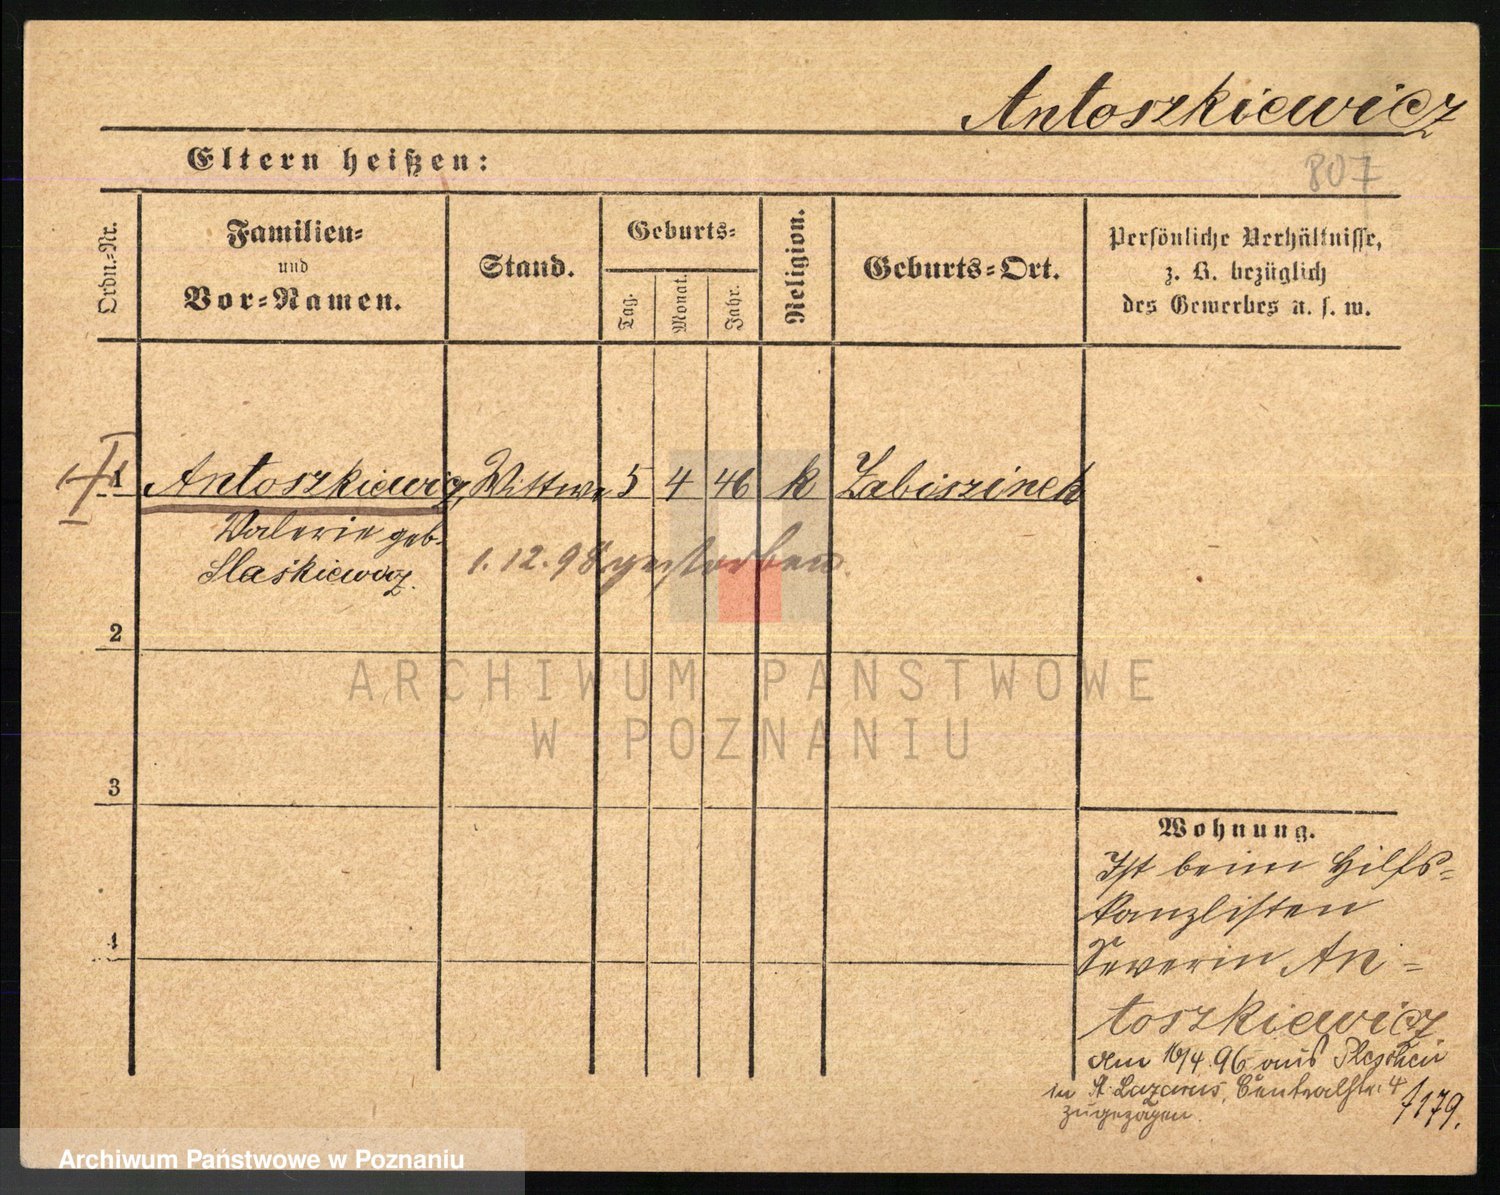 Antoszkiewicz
807
Eltern heißen:
Ordn.-Nr.
Familien-
und
Vor-Namen.
Stand.
Geburts-
Tag.
Monat.
Jahr.
Religion.
Geburts-Ort.
Persönliche Verhältnisse,
z. B. bezüglich
des Gewerbes u. s. w.
I
1 Antoszkiewicz, Wittwe 5 4 46 k Zabiszinek
Valerie geb.
Slaskiewicz.
1.12.98 gestorben.
2
3
4
Wohnung.
Ist beim Hilfs-
kanzlisten
Severin An-
toszkiewicz
Am 16/4.96 aus Pleschen
in St. Lazarus, Centralstr. 4
zugezogen.
179.
ARCHIWUM PAŃSTWOWE
W POZNANIU
Archiwum Państwowe w Poznaniu